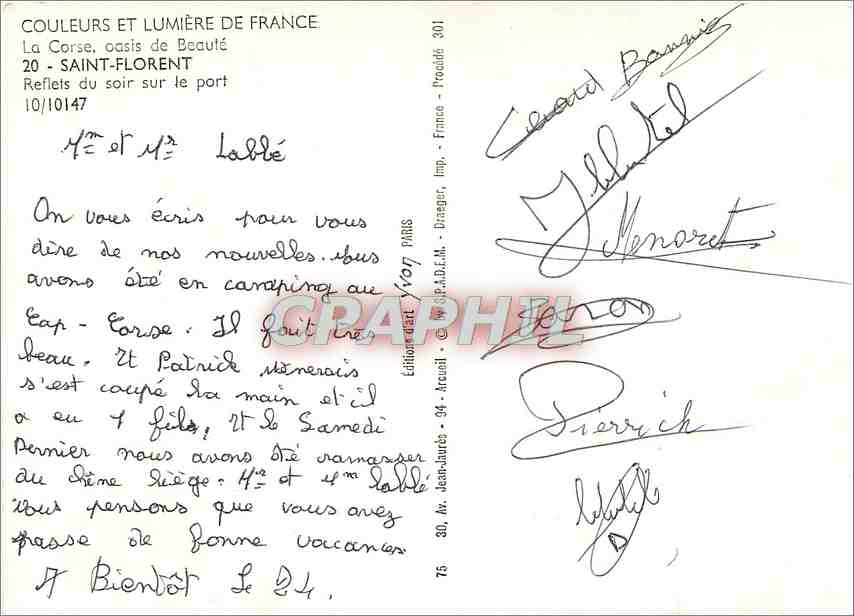 COULEURS ET LUMIÈRE DE FRANCE
La Corse, oasis de Beauté
20 - SAINT-FLORENT
Reflets du soir sur le port
10/10147
Mme et Mr Labbé
On vous écris pour vous
dire de nos nouvelles. Nous
avons été en camping au
Cap - Corse. Il fait très
beau. Et Patrick
s'est coupé la main et il
a eu 1 fils, Et le Samedi
Dernier nous avons été ramasser
du chêne liège. Mr et Mme Labbé
Nous pensons que vous avez
passe de bonne vacances
A Bientôt Le 24.
Editions d'art Yvon PARIS
75 30, Av. Jean-Jaurès - 94 - Arcueil - © by S.P.A.D.E.M. - Draeger, Imp. - France - Procédé 301
CPAPHIL
Menoret
Pierrick